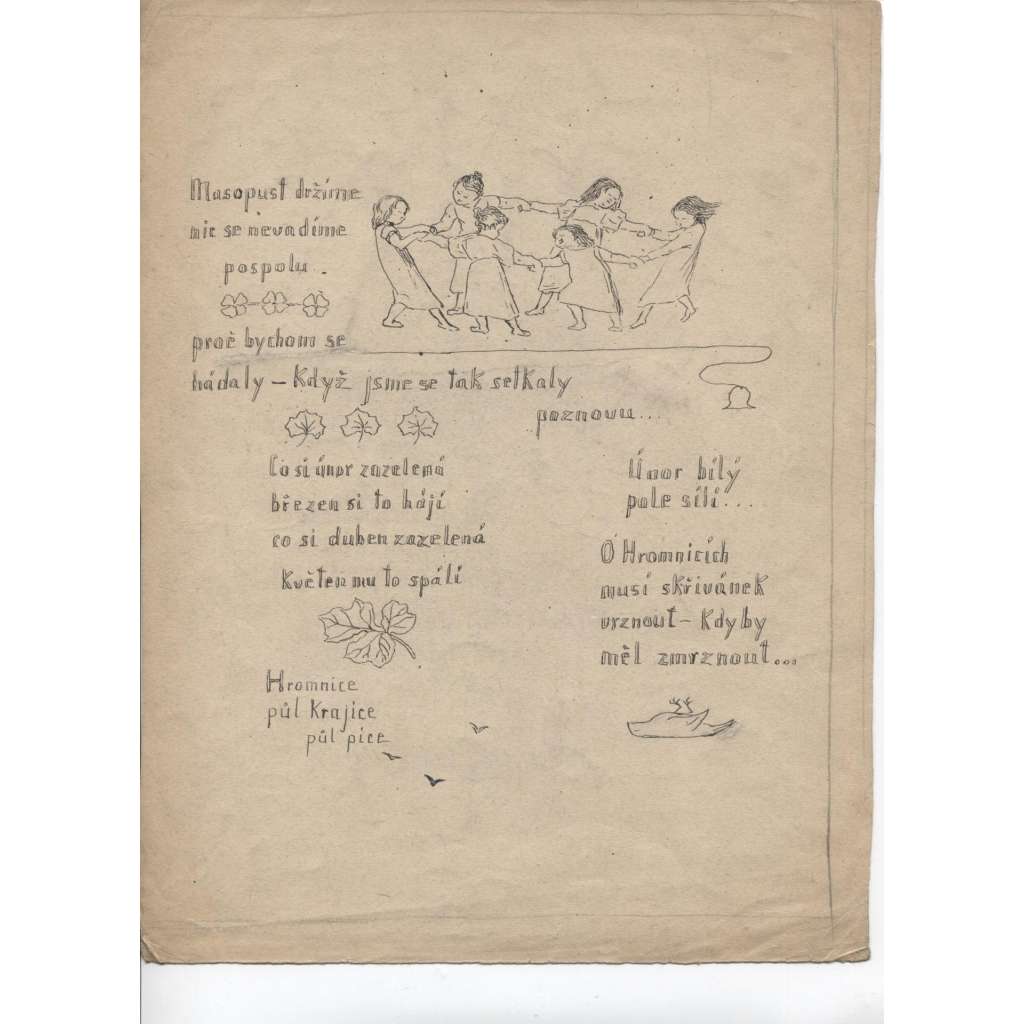 Masopust držíme
nic se nevadíme
pospolu.
proč bychom se
hádaly – Když jsme se tak setkaly
poznovu...
Co si únor zazelená
březen si to hájí
co si duben zazelená
Květen mu to spálí
Hromnice
půl Krajíce
půl píce
Únor bílý
pole sílí...
O Hromnicích
musí skřivánek
vrznout – Kdyby
měl zmrznout...